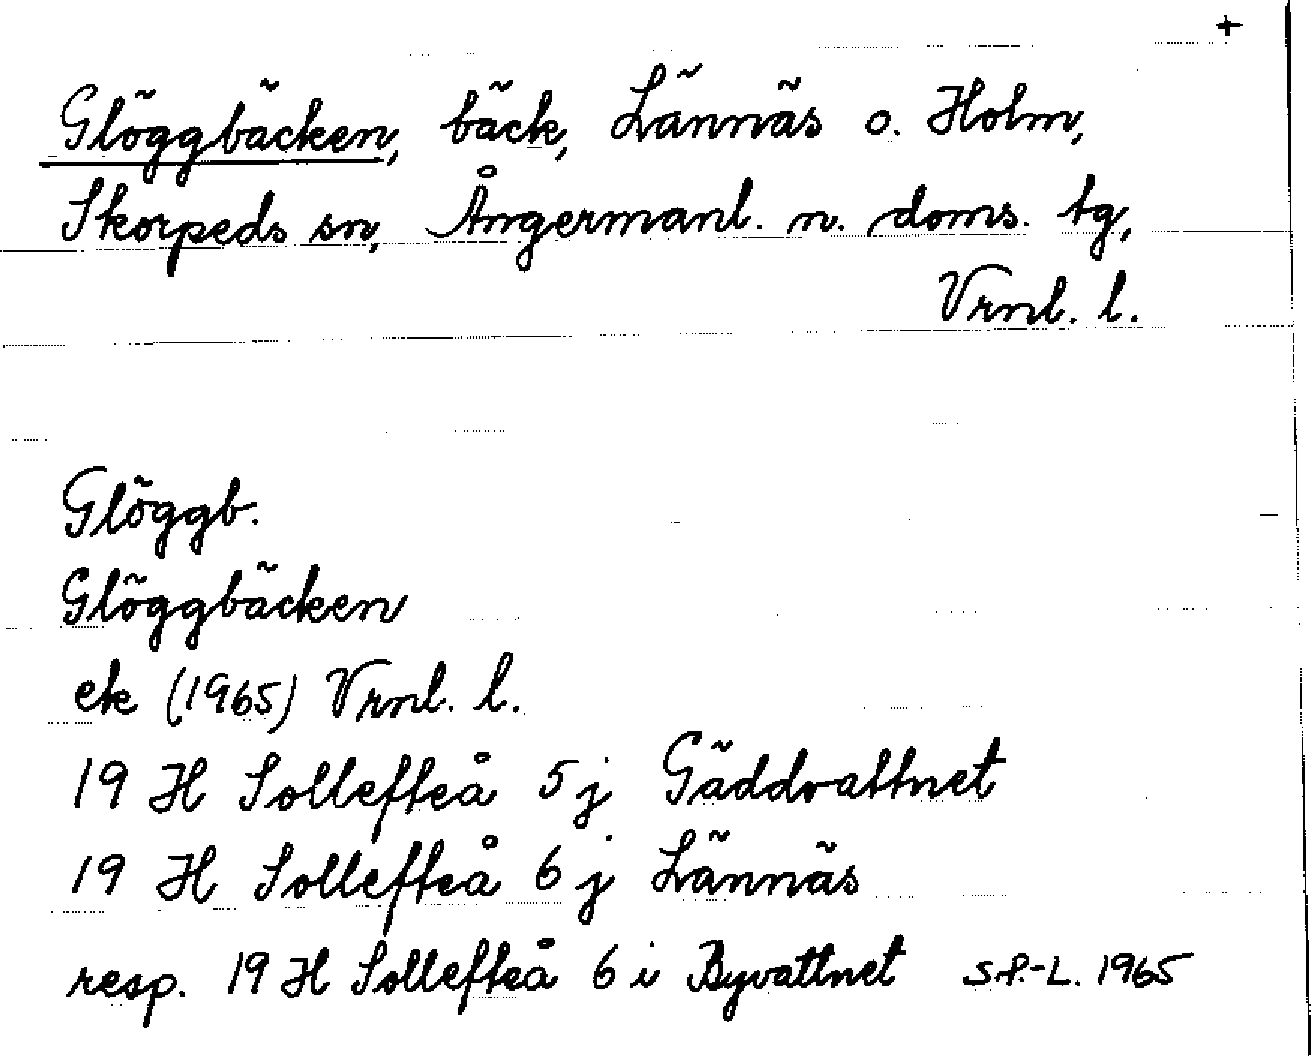 +
Glöggbäcken, bäck, Lännäs o. Holm,
Skorpeds sn, Ångermanl. n. doms. tg,
Vrnl. l.
Glöggb.
Glöggbäcken
ek (1965) Vrnl. l.
19 H Sollefteå 5 j Gäddvattnet
19 H Sollefteå 6 j Lännäs
resp. 19 H Sollefteå 6 i Byvattnet S.P.-L. 1965